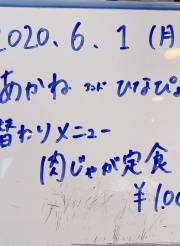 2020.6.1(月
あかね ランド ひなぴよ
替わりメニュー
肉じゃが定食
¥1,00